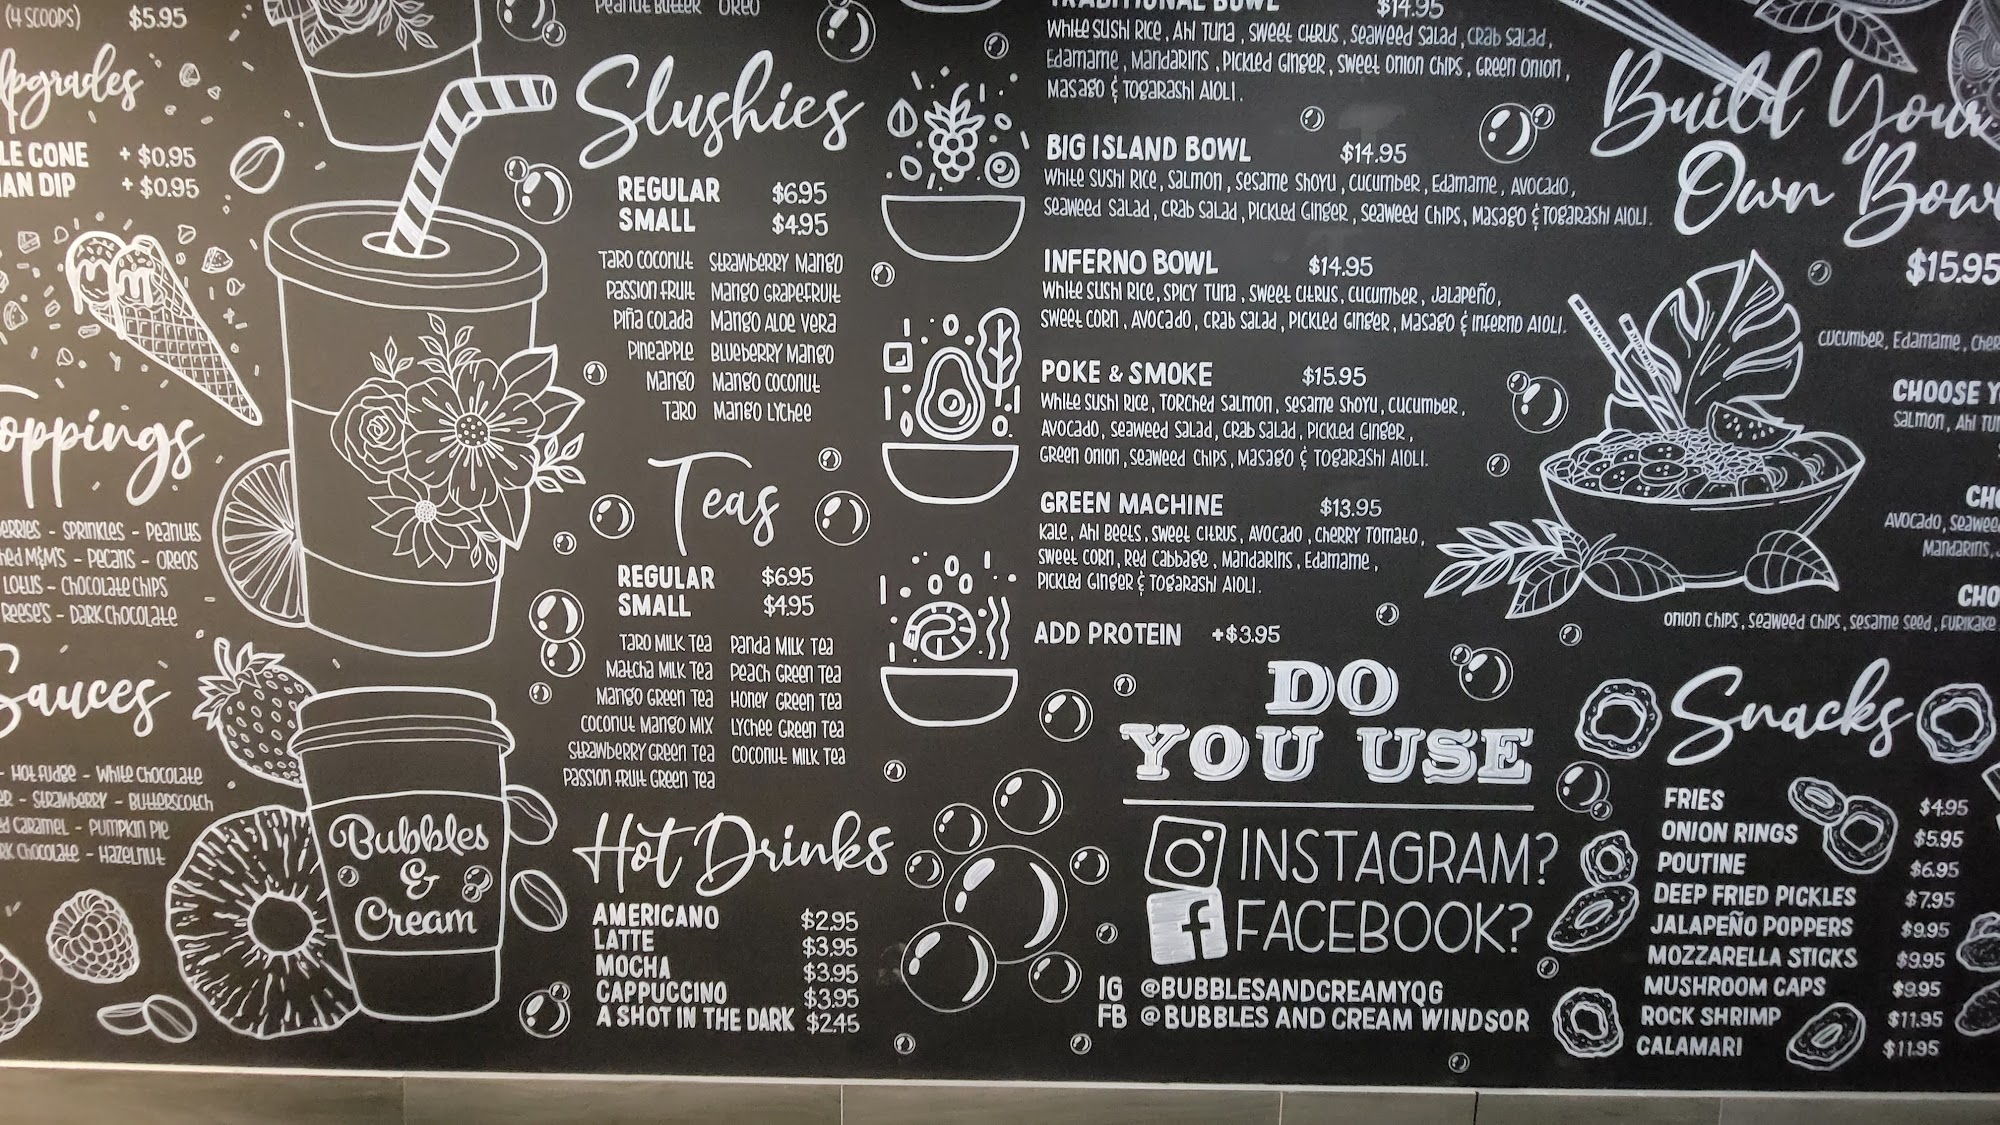 (4 SCOOPS) $5.95
pgrades
LE CONE + $0.95
AN DIP + $0.95
oppings
ERRIES - SPRINKLES - PEANUTS
HED M&M'S - PECANS - OREOS
LOTUS - CHOCOLATE CHIPS
REESE'S - DARK CHOCOLATE
Sauces
- HOT FUDGE - WHITE CHOCOLATE
ER - STRAWBERRY - BUTTERSCOTCH
ED CARAMEL - PUMPKIN PIE
RK CHOCOLATE - HAZELNUT
Bubbles
&
Cream
PEANUT BUTTER OREO
Slushies
REGULAR $6.95
SMALL $4.95
TARO COCONUT STRAWBERRY MANGO
PASSION FRUIT MANGO GRAPEFRUIT
PIÑA COLADA MANGO ALOE VERA
PINEAPPLE BLUEBERRY MANGO
MANGO MANGO COCONUT
TARO MANGO LYCHEE
Teas
REGULAR $6.95
SMALL $4.95
TARO MILK TEA PANDA MILK TEA
MATCHA MILK TEA PEACH GREEN TEA
MANGO GREEN TEA HONEY GREEN TEA
COCONUT MANGO MIX LYCHEE GREEN TEA
STRAWBERRY GREEN TEA COCONUT MILK TEA
PASSION FRUIT GREEN TEA
Hot Drinks
AMERICANO $2.95
LATTE $3.95
MOCHA $3.95
CAPPUCCINO $3.95
A SHOT IN THE DARK $2.45
TRADITIONAL BOWL $14.95
WHITE SUSHI RICE, AHI TUNA, SWEET CITRUS, SEAWEED SALAD, CRAB SALAD,
EDAMAME, MANDARINS, PICKLED GINGER, SWEET ONION CHIPS, GREEN ONION,
MASAGO & TOGARASHI AIOLI.
BIG ISLAND BOWL $14.95
WHITE SUSHI RICE, SALMON, SESAME SHOYU, CUCUMBER, EDAMAME, AVOCADO,
SEAWEED SALAD, CRAB SALAD, PICKLED GINGER, SEAWEED CHIPS, MASAGO & TOGARASHI AIOLI.
INFERNO BOWL $14.95
WHITE SUSHI RICE, SPICY TUNA, SWEET CITRUS, CUCUMBER, JALAPEÑO,
SWEET CORN, AVOCADO, CRAB SALAD, PICKLED GINGER, MASAGO & INFERNO AIOLI.
POKE & SMOKE $15.95
WHITE SUSHI RICE, TORCHED SALMON, SESAME SHOYU, CUCUMBER,
AVOCADO, SEAWEED SALAD, CRAB SALAD, PICKLED GINGER,
GREEN ONION, SEAWEED CHIPS, MASAGO & TOGARASHI AIOLI.
GREEN MACHINE $13.95
KALE, AHI BEETS, SWEET CITRUS, AVOCADO, CHERRY TOMATO,
SWEET CORN, RED CABBAGE, MANDARINS, EDAMAME,
PICKLED GINGER & TOGARASHI AIOLI.
ADD PROTEIN +$3.95
DO
YOU USE
INSTAGRAM?
FACEBOOK?
IG @BUBBLESANDCREAMYQG
FB @BUBBLES AND CREAM WINDSOR
Build Your
Own Bowl
$15.95
CUCUMBER, EDAMAME, CHER
CHOOSE Y
SALMON, AHI TUN
CH
AVOCADO, SEAWEE
MANDARINS,
CHO
ONION CHIPS, SEAWEED CHIPS, SESAME SEED, FURIKAKE
Snacks
FRIES $4.95
ONION RINGS $5.95
POUTINE $6.95
DEEP FRIED PICKLES $7.95
JALAPEÑO POPPERS $9.95
MOZZARELLA STICKS $9.95
MUSHROOM CAPS $9.95
ROCK SHRIMP $11.95
CALAMARI $11.95